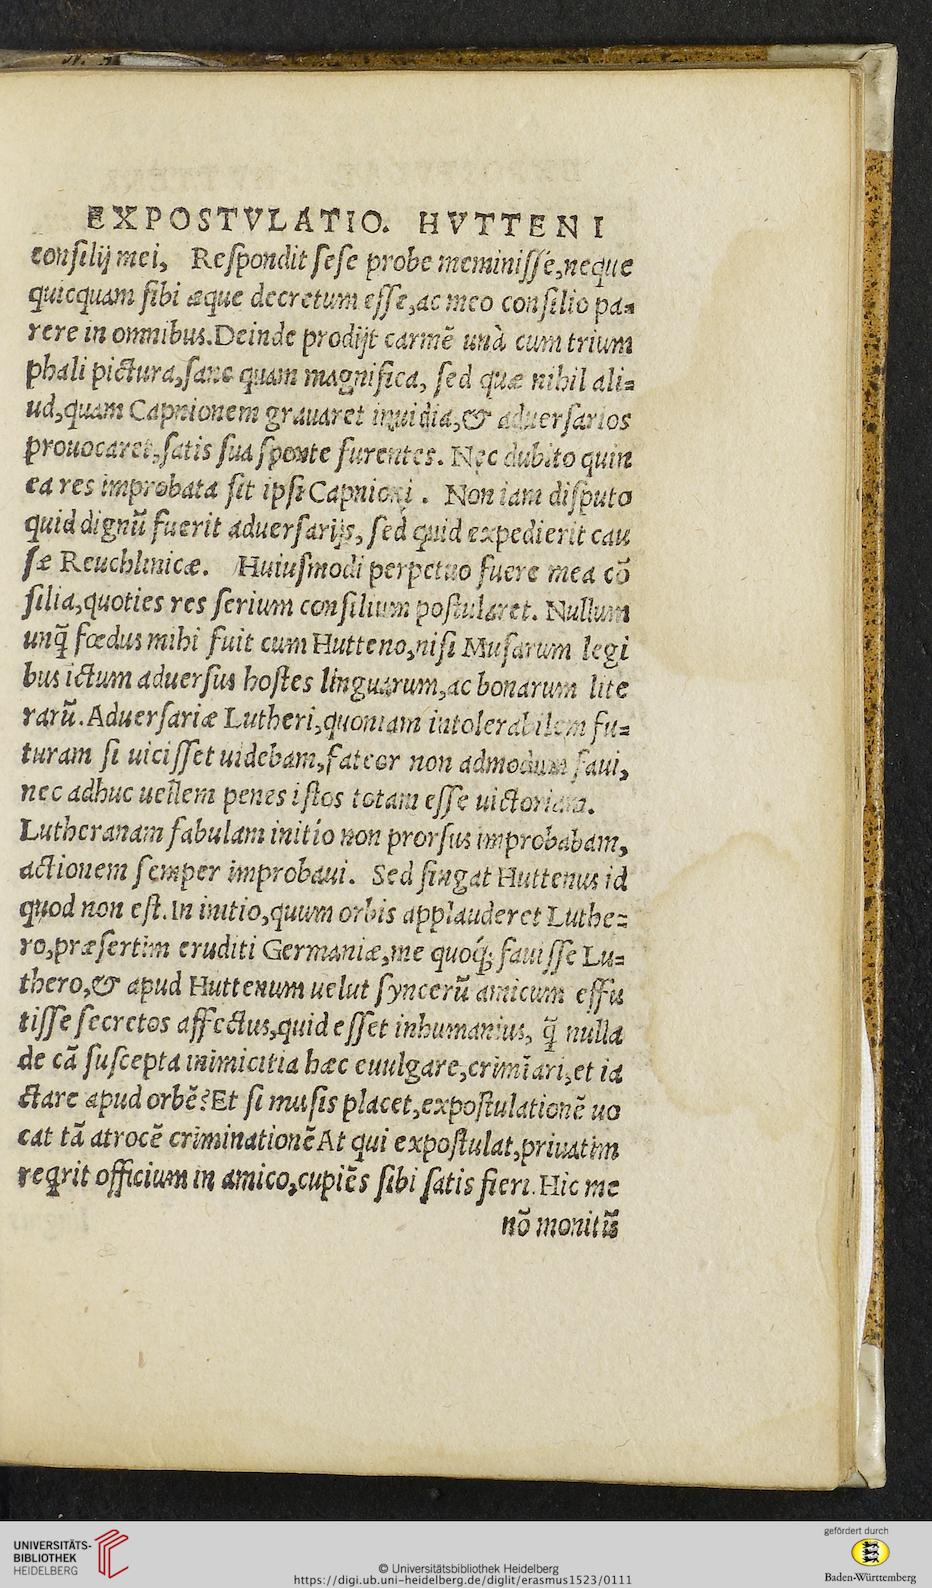 EXPOSTVLATIO. HVTTENI
conſilij mei, Reſpondit ſeſe probe meminiſſe,neque
quicquam ſibi æque decretum eſſe,ac meo conſilio pa-
rere in omnibus.Deinde prodijt carmẽ unà cum trium
phali pictura,ſane quam magnifica, ſed quæ nihil ali=
ud,quam Capnionem grauaret inuidia,& aduerſarios
prouocaret,ſatis ſua ſponte furentes. Nec dubito quin
ea res improbata ſit ipſi Capnioni . Non iam diſputo
quid dignũ fuerit aduerſarijs, ſed quid expedierit cau
ſæ Reuchlinicæ. Huiuſmodi perpetuo fuere mea cõ
ſilia,quoties res ſerium conſilium poſtularet. Nullum
unq̃ fœdus mihi fuit cum Hutteno,niſi Muſarum legi
bus ictum aduerſus hoſtes linguarum,ac bonarum lite
rarũ.Aduerſariæ Lutheri,quoniam intolerabilem fu=
turam ſi uiciſſet uidebam,fateor non admodum faui,
nec adhuc uellem penes iſtos totam eſſe uictoriam.
Lutheranam fabulam initio non prorſus improbabam,
actionem ſemper improbaui. Sed fingat Huttenus id
quod non eſt.In initio,quum orbis applauderet Luthe=
ro,præſertim eruditi Germaniæ,me quoq́; fauiſſe Lu=
thero,& apud Huttenum uelut ſyncerũ amicum effu
tiſſe ſecretos affectus,quid eſſet inhumanius, q̃ nulla
de cã ſuſcepta inimicitia hæc euulgare,crimĩari,et ia
ctare apud orbẽ?Et ſi muſis placet,expoſtulationẽ uo
cat tã atrocẽ criminationẽ At qui expoſtulat,priuatim
reqrit officium in amico,cupiẽs ſibi ſatis fieri.Hic me
nõ monitũ
UNIVERSITÄTS-
BIBLIOTHEK
HEIDELBERG
© Universitätsbibliothek Heidelberg
https://digi.ub.uni-heidelberg.de/diglit/erasmus1523/0111
gefördert durch
Baden-Württemberg